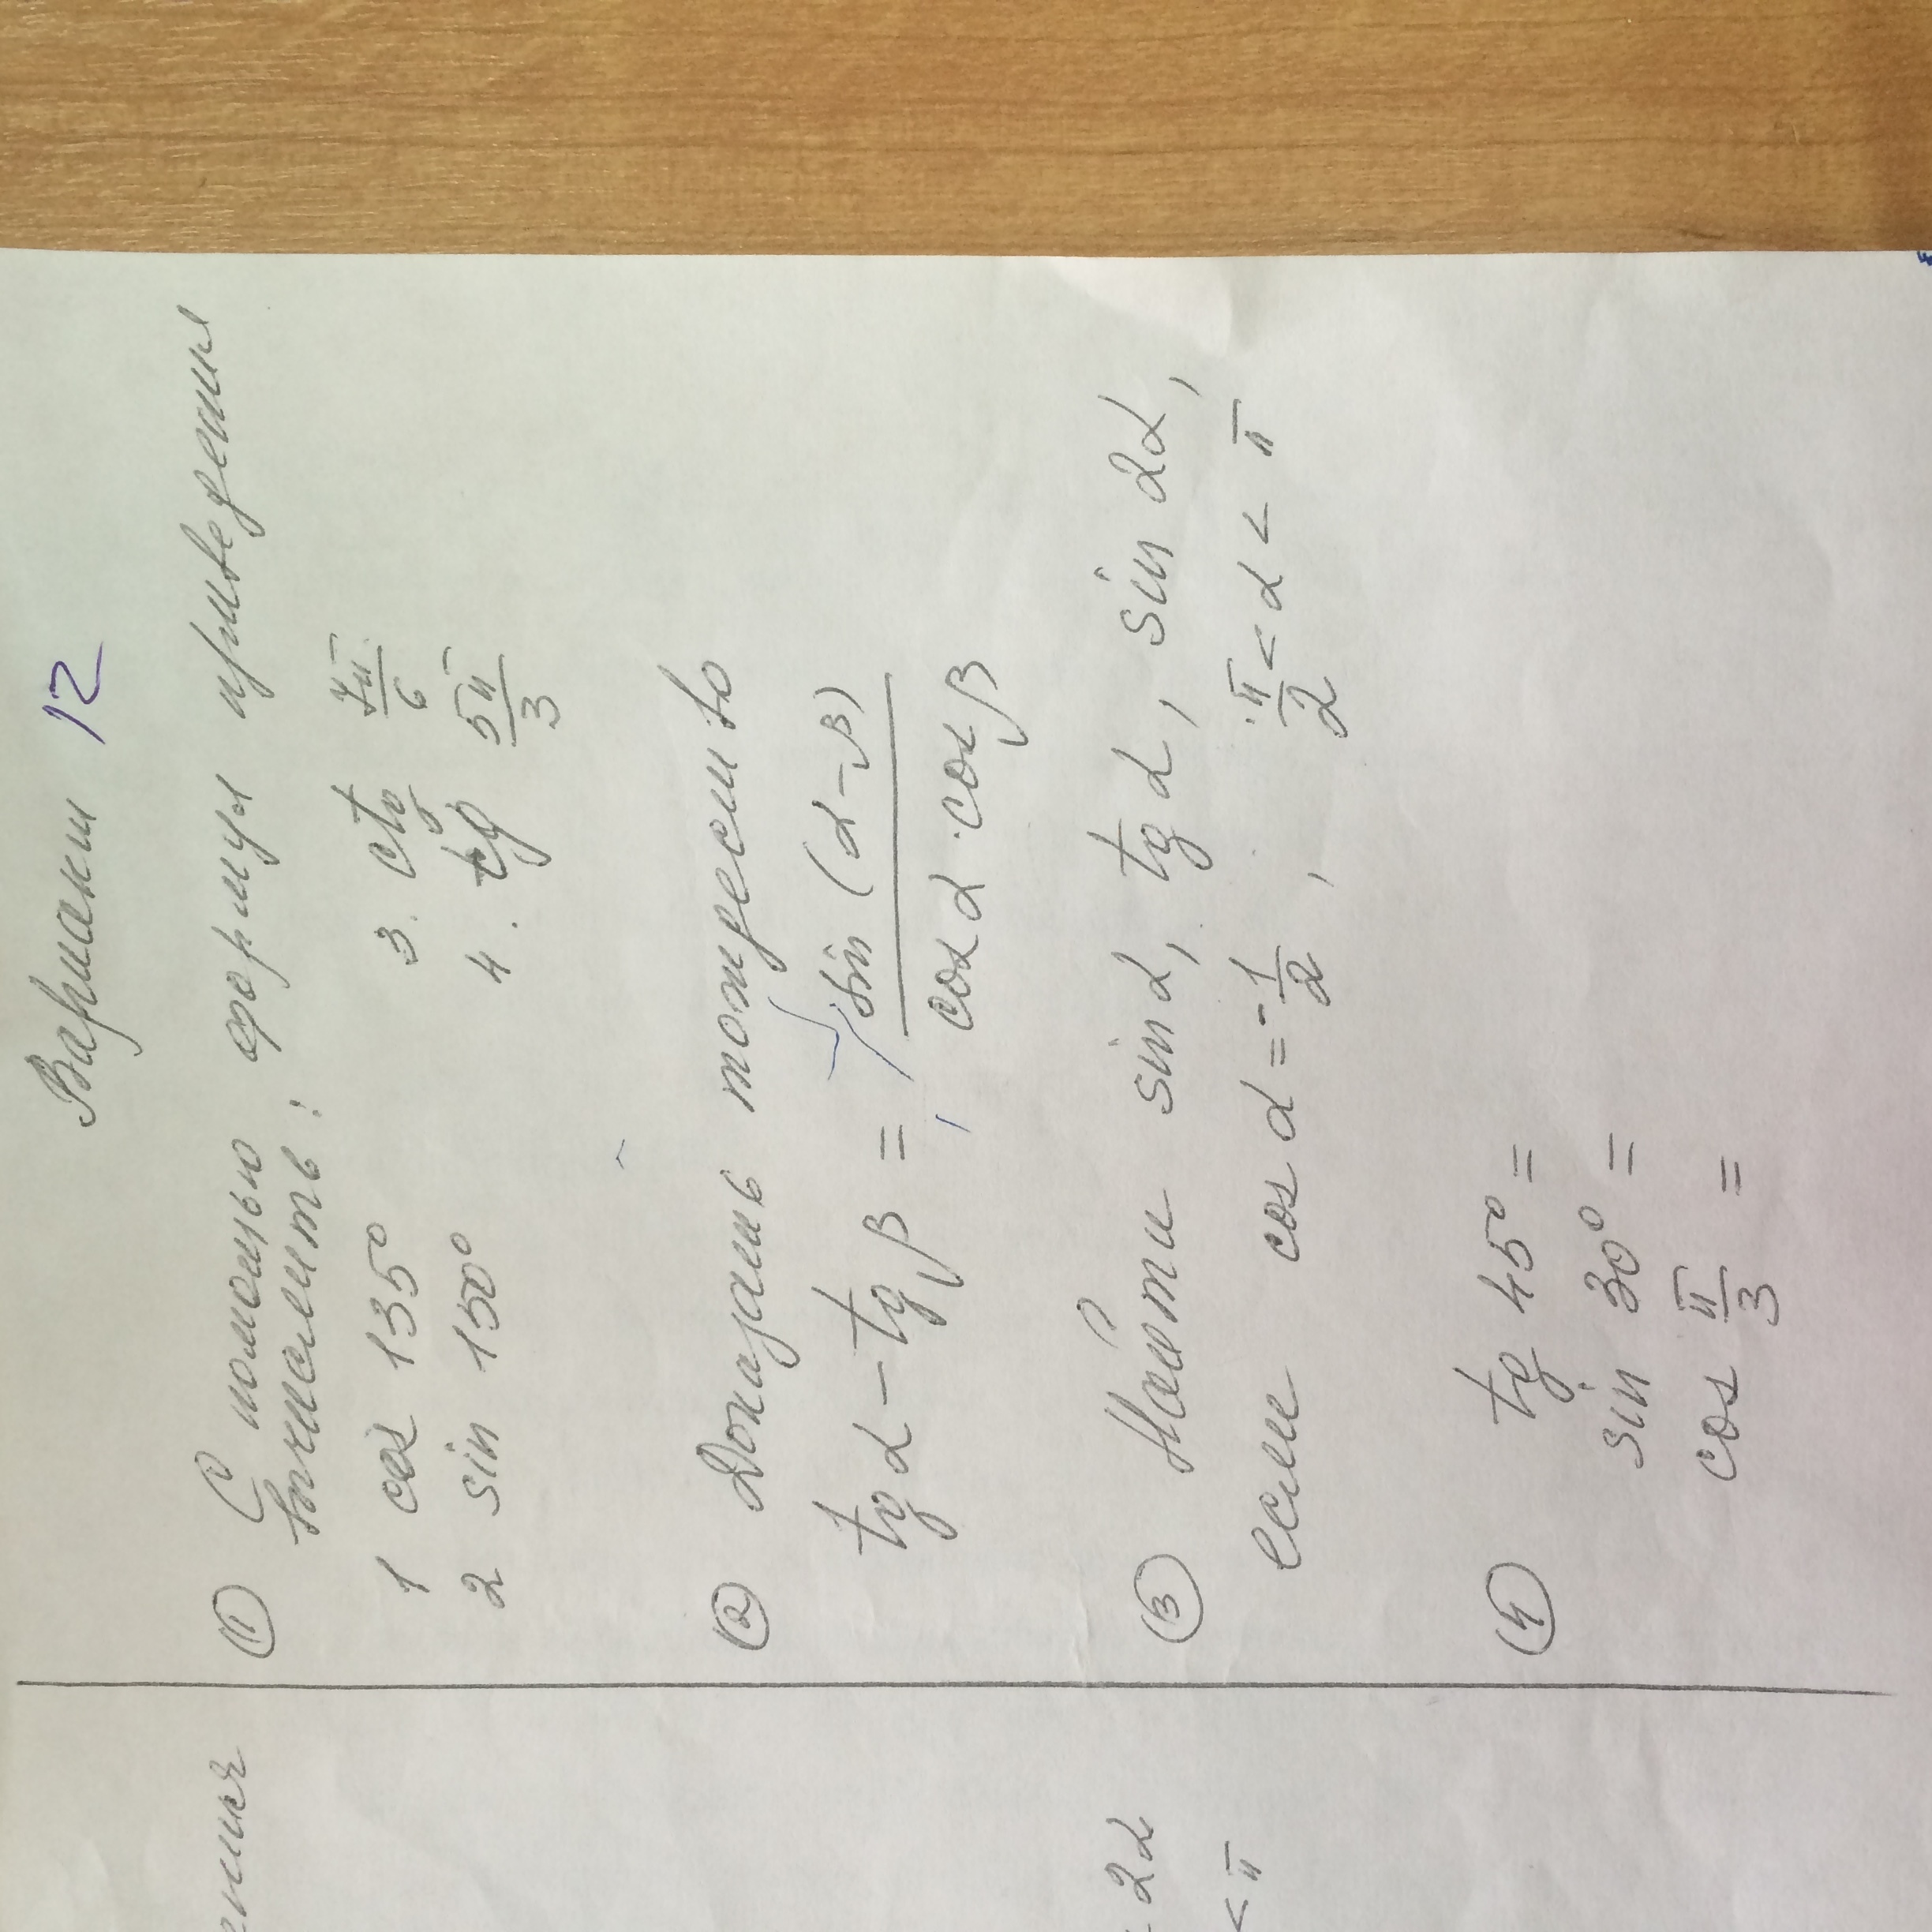 Вариант 12
① С помощью формул приведения
вычислить:
1 cos 135° 3. ctg 7π/6
2 sin 150° 4. tg 5π/3
② Доказать тождество
tg α − tg β = sin (α − β) / cos α · cos β
③ Найти sin α, tg α, sin 2α,
если cos α = −1/2, π/2 < α < π
④ tg 45° =
sin 30° =
cos π/3 =
2α
< π